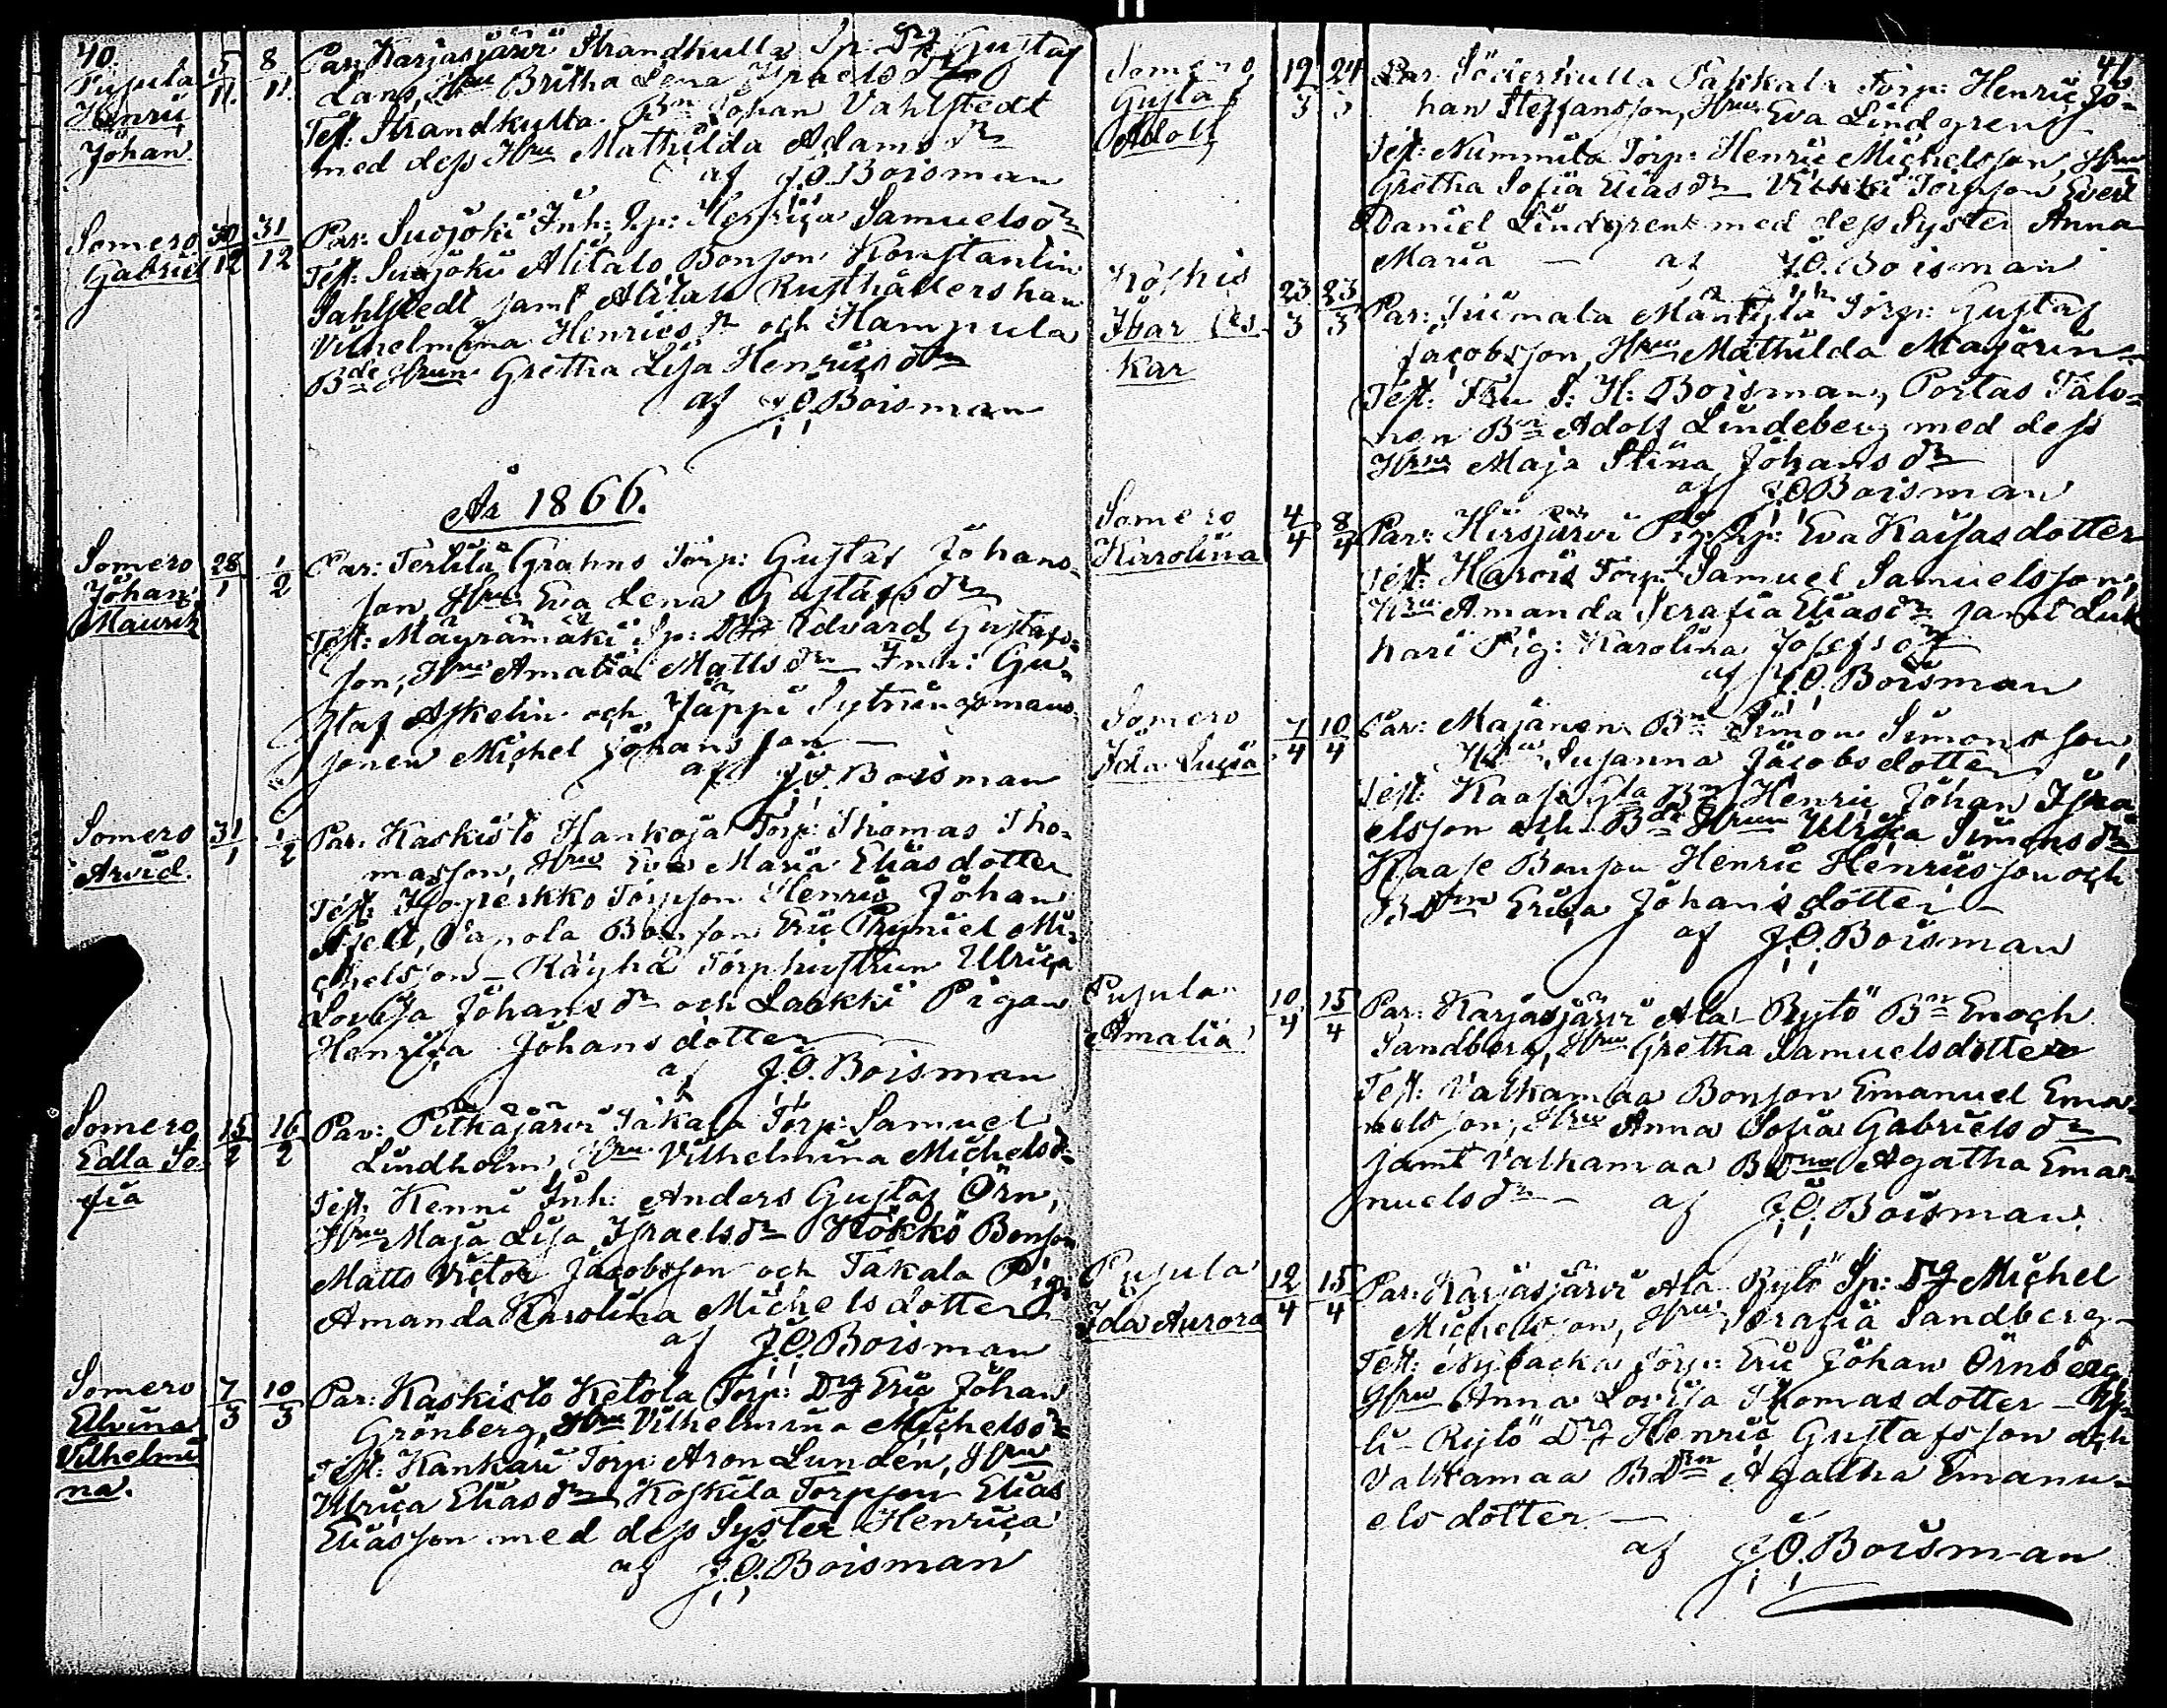 40.
Pusula 5/11. 8/11. Par: Karjasjärvi Strandkulla Sp. Dg Gustaf
Henric Lans, Hru Britha Lena Israels dr
Johan Test: Strandkulla Bn Johan Vahlstedt
med dess Hru Mathilda Adams dr
af J.O. Boisman
Somero 30/12 31/12 Par: Suojoki Inh: Sp: Henrica Samuels dr
Gabriel Test: Suojoki Alitalo Bonson Konstantin
Sahlstedt samt Alitalo Rusthållers han
Vilhelmina Henrics dr och Hampula
Bde Hrun Gretha Lisa Henrics dr
af J.O. Boisman
År 1866.
Somero 28/1 1/2 Par: Terttilä Grahns Torp: Gustaf Johans-
Johan son, Hru Eva Lena Gustafs dr
Maurits Test: Mäyrämäki Sp: Dg Edvard Gustafs-
son, Hru Amalia Matts dr Inh: Gu-
staf Askelin och Jäppi Sytningsmans
sonen Michel Johansson —
af J.O. Boisman
Somero 31/1 1/2 Par: Kaskisto Hankoja Torp: Thomas Tho-
Arvid. masson, Hru Eva Maria Elias dotter
Test: Isoperkko Torpson Henric Johan
Alfelt, Vanola Bonson Eric Michelsson — Käyhä Torphustrun Ulrica
Lovisa Johans dr och Laakki Pigan
Henrica Johans dotter
af J.O. Boisman
Somero 15/2 16/2 Par: Pitkäjärvi Täkälä Torp: Samuel
Edla So- Lindholm, Hru Vilhelmina Michels dr
fia Test: Kenni Inh: Anders Gustaf Örn,
Hru Maja Lisa Israels dr Hökkö Bonson
Matts Victor Jacobsson och Täkälä Pig:
Amanda Karolina Michels dotter
af J.O. Boisman
Somero 7/3 10/3 Par: Kaskisto Ketola Torp: Dg Eric Johan
Elvina Grönberg, Hru Vilhelmina Michels dr
Vilhelmi Test: Kankari Torp: Aron Lunden, Hru
na. Ulrica Elias dr Koskila Torpson Elias
Eliasson med dess Syster Henrica
af J.O. Boisman
41
Somero 19/3 24/3 Par: Söderkulla Pakkala Torp: Henric Jo-
Gustaf han Steffansson, Hru Eva Lindgren
Adolf Test: Nummila Torp: Henric Michelsson, Hru
Gretha Sofia Elias dr Torpson Evert
Daniel Lindgren med dess Syster Anna
Maria — af J.O. Boisman
Koskis 23/3 23/3 Par: Tuimala Mäntylä Torp: Gustaf
Ibar Os- Jacobsson, Hru Mathilda Majorin
kar Test: Fru S: H: Boisman, Portas Talo-
nen Bn Adolf Lindeberg med dess
Hru Maja Stina Johans dr
af J.O. Boisman
Somero 4/4 8/4 Par: Hirsjärvi Pig: Sp: Eva Kaisas dotter
Karolina Test: Harois Torp: Samuel Samuelsson,
Hru Amanda Serafia Elias dr samt Luk
kari Pig: Karolina Josefs dr
af J.O. Boisman
Somero 7/4 10/4 Par: Majanen Bn Simon Simonsson,
Ida Lucia Hru Susanna Jacobs dotter
Test: Kaase Bn Henric Johan Isra
elsson och Bde Hrun Ulrica Simons dr
Kaase Bonson Henric Henricsson och
B Drn Erica Johans dotter —
af J.O. Boisman
Pusula 10/4 15/4 Par: Karjasjärvi Ala-Rytö Bn Enoch
Amalia Sandberg, Hru Gretha Samuels dotter
Test: Valkamaa Bonson Emanuel Ema-
nuelsson, Hru Anna Sofia Gabriels dr
samt Valkamaa B Drn Agatha Ema-
nuels dr — af J.O. Boisman
Pusula 12/4 15/4 Par: Karjasjärvi Ala Rytö Sp: Dg Michel
Ida Aurora Michelsson, Hru Serafia Sandberg
Test: Nybacka Torp: Eric Johan Örnberg
Hru Anna Lovisa Thomas dotter — Y-
li-Rytö Dg Henric Gustafsson och
Valkamaa B Drn Agatha Emanu-
els dotter —
af J.O. Boisman